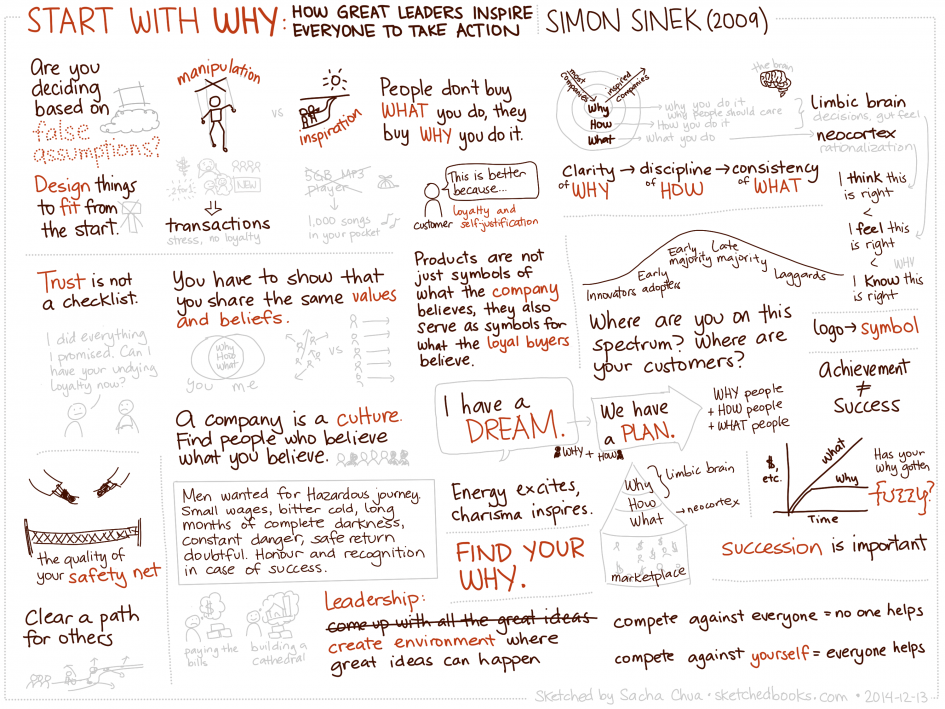 START WITH WHY:
HOW GREAT LEADERS INSPIRE
EVERYONE TO TAKE ACTION
SIMON SINEK (2009)
Are you
deciding
based on
false
assumptions?
Design things
to fit from
the start.
manipulation
vs
inspiration
NEW
transactions
stress, no loyalty
5GB MP3
player
1,000 songs
in your pocket
People don't buy
WHAT you do, they
buy WHY you do it.
This is better
because...
customer
loyalty and
self-justification
most
companies
inspired
companies
Why
How
What
why you do it
why people should care
How you do it
What you do
the brain
Limbic brain
decisions, gut feel
neocortex
rationalization
clarity → discipline → consistency
of WHY
of HOW
of WHAT
I think this
is right
<
I feel this
is right
<
WHY
I Know this
is right
Trust is not
a checklist.
I did everything
I promised. Can I
have your undying
loyalty now?
You have to show that
you share the same values
and beliefs.
Why
How
What
you
me
VS
Products are not
just symbols of
what the company
believes, they also
serve as symbols for
what the loyal buyers
believe.
Innovators
Early
adopters
Early
majority
Late
majority
Laggards
Where are you on this
spectrum? Where are
your customers?
logo → symbol
Achievement
≠
Success
A company is a culture.
Find people who believe
what you believe.
I have a
DREAM.
We have
a PLAN.
WHY + HOW
WHY people
+ HOW people
+ WHAT people
the quality of
your safety net
Men wanted for Hazardous journey.
Small wages, bitter cold, long
months of complete darkness,
constant danger, safe return
doubtful. Honour and recognition
in case of success.
Energy excites,
charisma inspires.
FIND YOUR
WHY.
Why
How
What
Limbic brain
→ neocortex
marketplace
$,
etc.
What
Why
Time
Has your
why gotten
fuzzy?
succession is important
Clear a path
for others
paying the
bills
building a
cathedral
Leadership:
come up with all the great ideas
create environment where
great ideas can happen
compete against everyone = no one helps
compete against yourself = everyone helps
Sketched by Sacha Chua · sketchedbooks.com · 2014-12-13